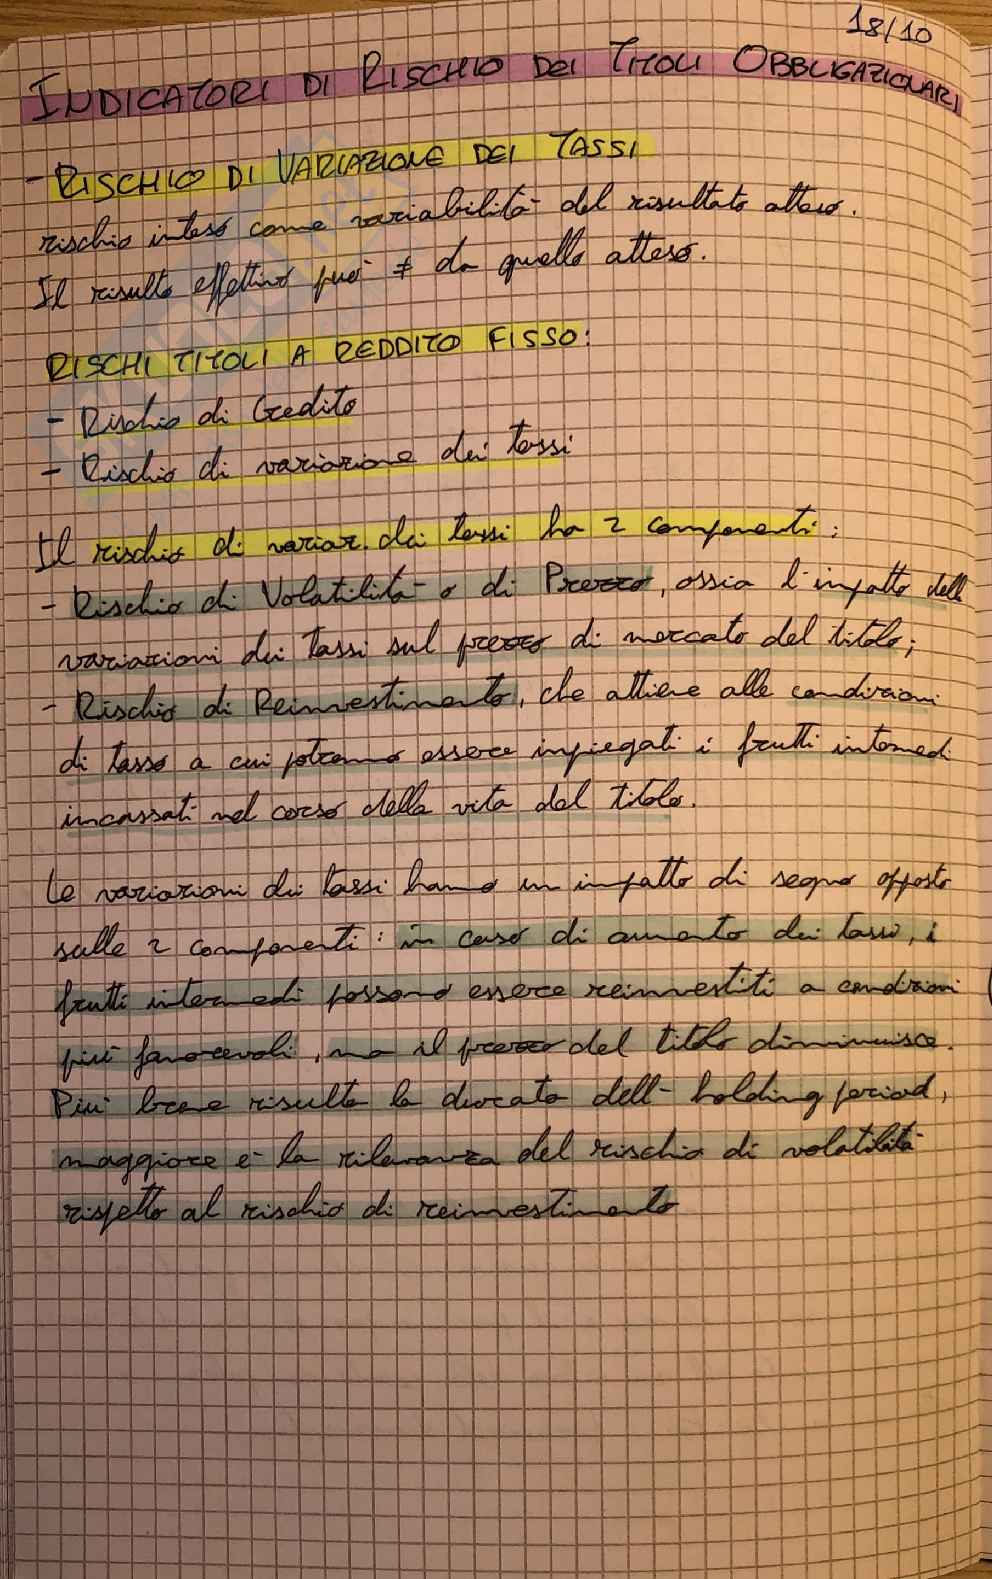 18/10
INDICATORI DI RISCHIO DEI TITOLI OBBLIGAZIONARI
- RISCHIO DI VARIAZIONE DEI TASSI
rischio inteso come variabilità del risultato atteso.
Il risulto effettivo può ≠ da quello atteso.
RISCHI TITOLI A REDDITO FISSO:
- Rischio di Credito
- Rischio di variazione dei tassi
Il rischio di variaz. dei tassi ha 2 componenti:
- Rischio di Volatilità o di Prezzo, ossia l'impatto delle
variazioni dei tassi sul prezzo di mercato del titolo;
- Rischio di Reinvestimento, che attiene alle condizioni
di tasso a cui potranno essere impiegati i frutti intermedi
incassati nel corso della vita del titolo.
Le variazioni dei tassi hanno un impatto di segno opposto
sulle 2 componenti: in caso di aumento dei tassi, i
frutti intermedi possono essere reinvestiti a condizioni
più favorevoli, ma il prezzo del titolo diminuisce.
Più breve risulta la durata dell' holding period,
maggiore è la rilevanza del rischio di volatilità
rispetto al rischio di reinvestimento